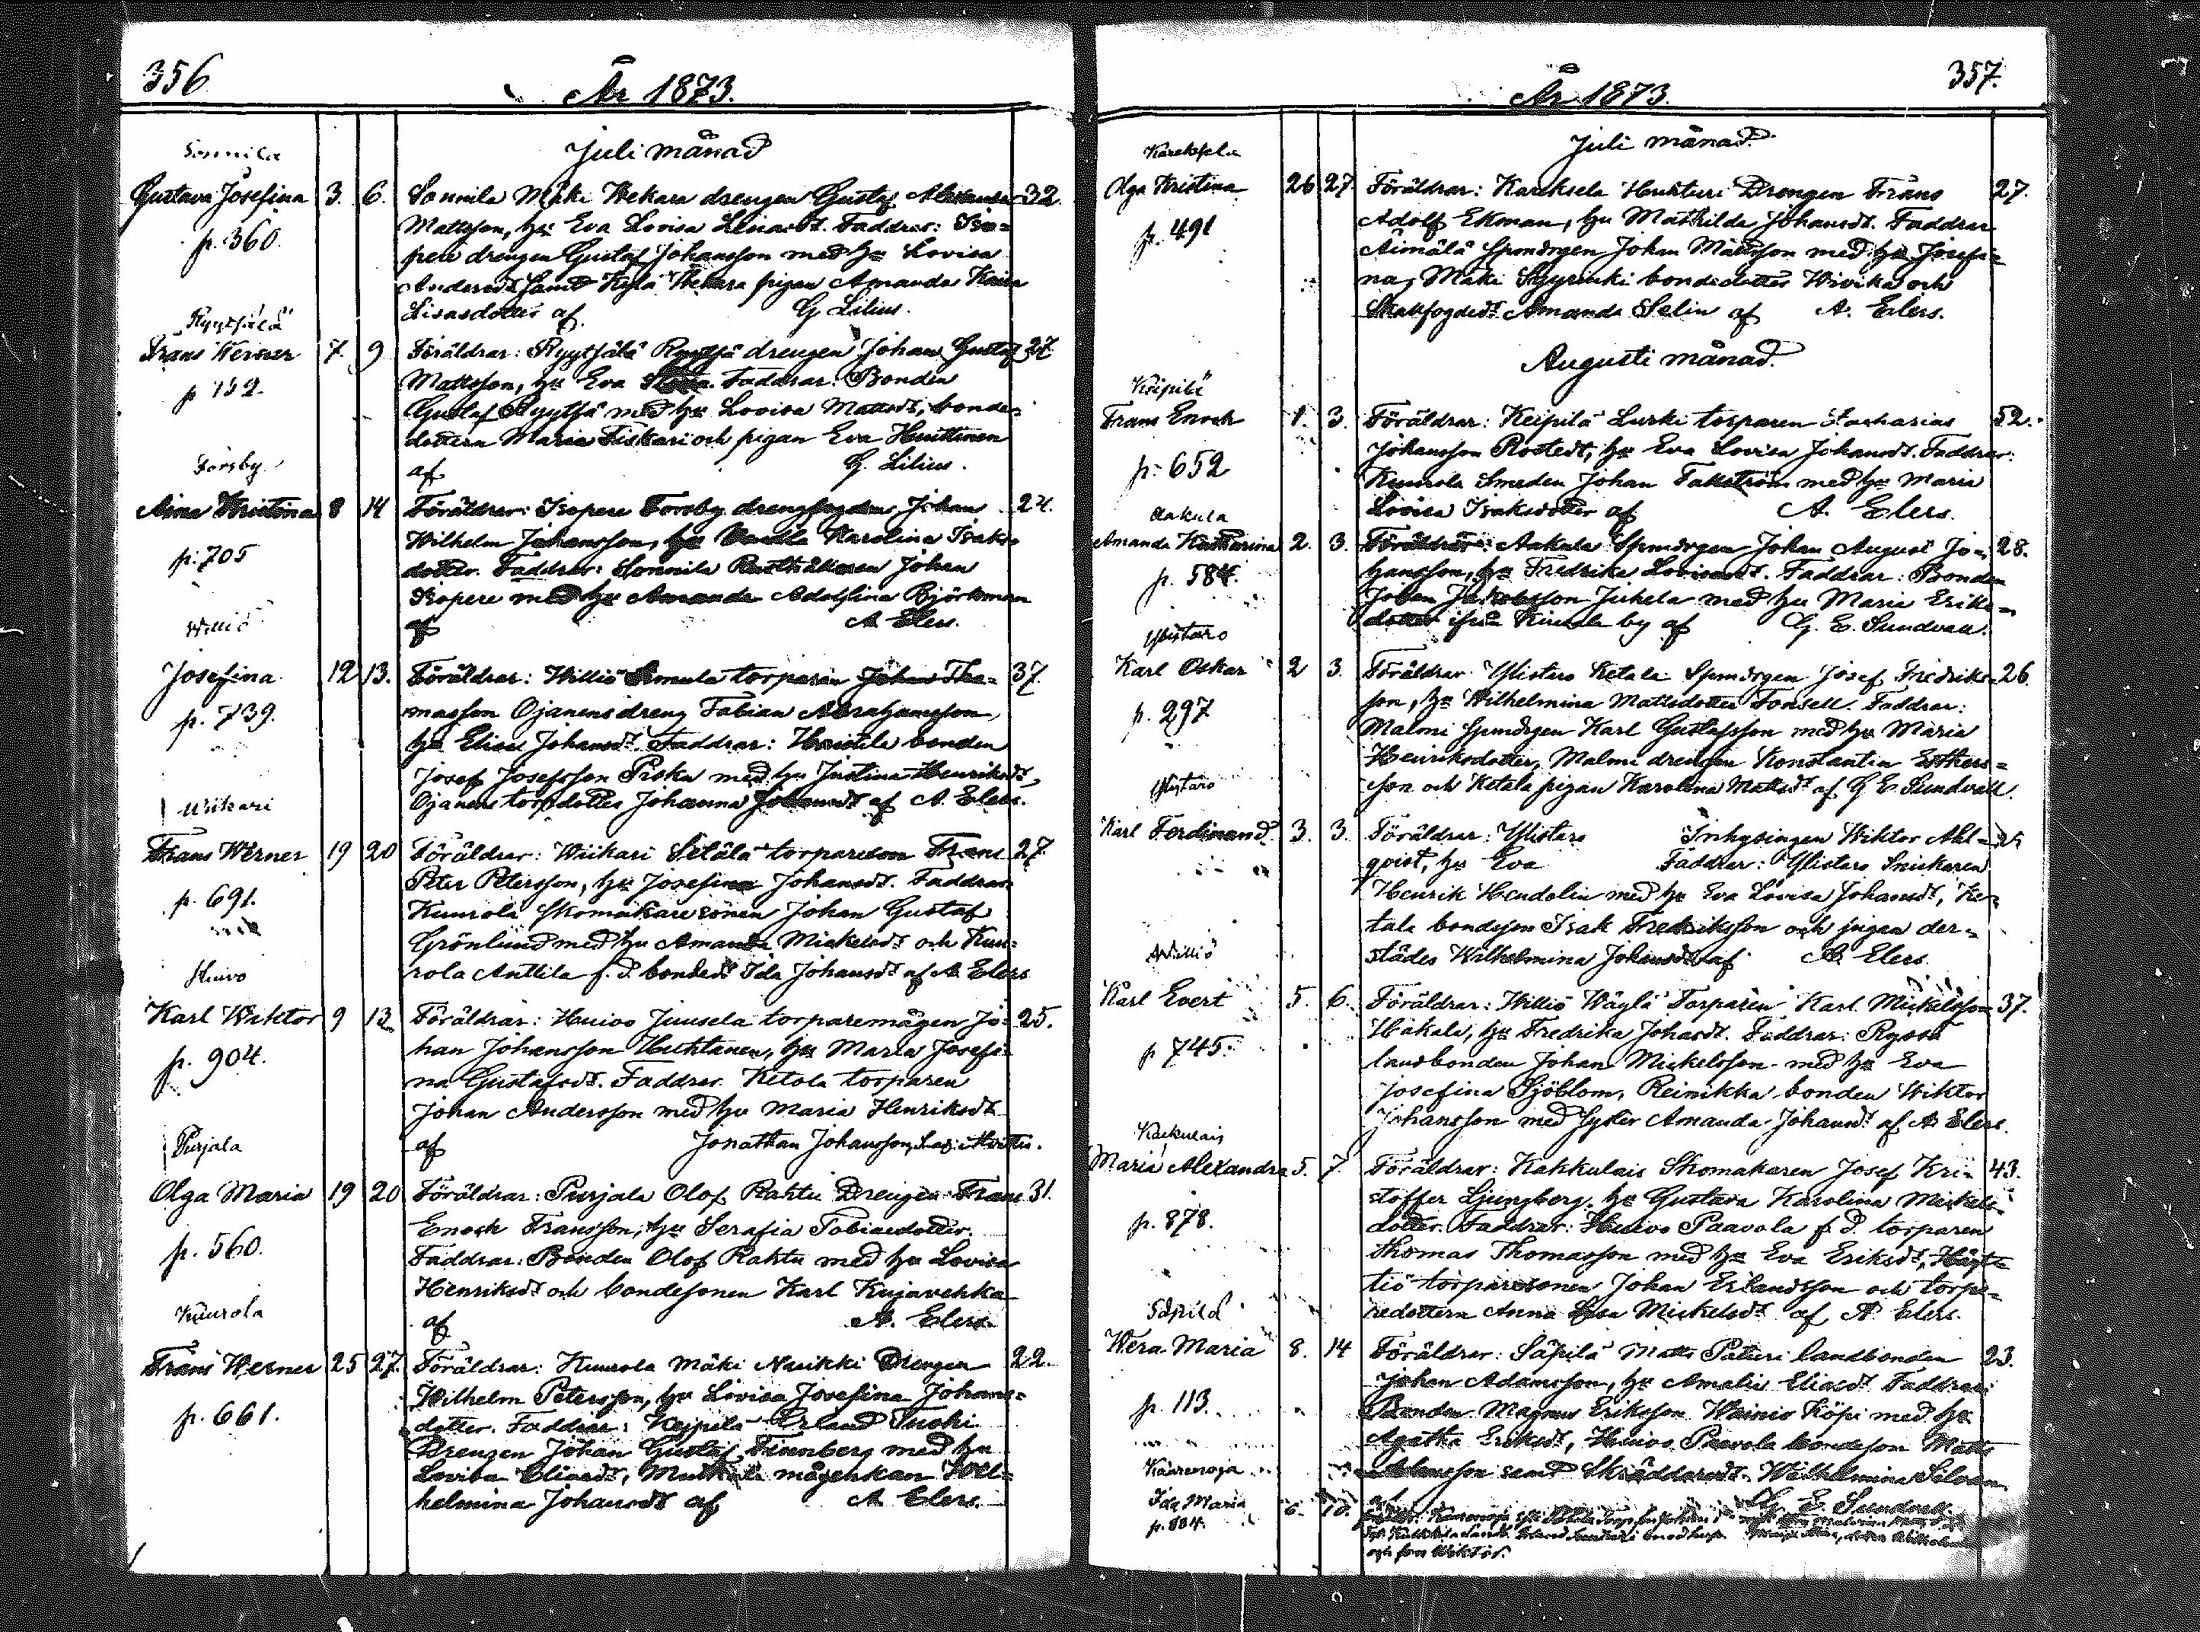 356
År 1873.
Juli månad
Sonnila
Gustava Josefina 3. 6. Sonnila Mäki Wekara drengen Gustaf Alexander 32.
p. 360. Mattsson, hu Eva Lovisa Faddrar: Iso-
pere drengen Gustaf Johansson med hu Lovisa
Andersdt. samt Kylä Wekara pigan Amanda Kaisa
Lisasdotter af G. Lilius.
Ryytsälä
Frans Werner 7 9 Föräldrar: Ryytsälä drengen Johan Gustaf 27
p 152. Mattsson, hu Eva Faddrar: Bonden
Gustaf Ryytsä med hu Lovisa Mattsdt, bonde-
dottern Maria Fiskari och pigan Eva Huittinen
af G. Lilius.
Forsby
Aina Kristina 8 14 Föräldrar: Isopere Forsby drengfogden Johan 24.
p. 705 Wilhelm Johansson, hu Karolina Isaks-
dotter. Faddrar: Sonnila Rusthållaren Johan
Isopere med hu Amanda Adolfina Björkman
af A. Elers.
Williö
Josefina 12 13. Föräldrar: Williö Simula torparen Johan Tho- 37.
p. 739. masson Ojanens dreng Fabian Abrahamsson,
hu Elisa Johansdt. Faddrar: bonden
Josef Josefsson Piska med hu Justina Henriksdt,
Ojanens torpdotter Johanna Johansdt af A. Elers.
Wiikari
Frans Werner 19 20 Föräldrar: Wiikari Setälä torpareson Frans 27
p. 691. Peter Petersson, hu Josefina Johansdt. Faddrar:
Kuurola Skomakaresonen Johan Gustaf
Grönlund med hu Amanda Mickelsdt och Kuu-
rola Anttila f. d. bondedt Ida Johansdt af A. Elers
Huivo
Karl Wiktor 9 13 Föräldrar: Huivo Juusela torparemågen Jo- 25.
p. 904. han Johansson Huhtanen, hu Maria Josefi-
na Gustafsdt. Faddrar Ketola torparen
Johan Andersson med hu Maria Henriksdt
af Jonathan Johansson,
Purjala
Olga Maria 19 20 Föräldrar: Purjala Olof Rahtu Drengen Frans 31.
p. 560. Enock Fransson, hu Serafia Tobiasdotter.
Faddrar: Bonden Olof Rahtu med hu Lovisa
Henriksdt och bondesonen Karl Kujavehka
af A. Elers.
Kuurola
Frans Werner 25 27. Föräldrar: Kuurola Mäki Nuikki Drengen 22.
p. 661. Wilhelm Petersson, hu Lovisa Josefina Johans-
dotter. Faddrar: Keipilä Erland Tuski
Drengen Johan Gustaf Finnberg med hu
Lovisa Eliasdt, mågenkan Wil-
helmina Johansdt af A. Elers.
357.
År 1873.
Juli månad.
Kareksela
Olga Kristina 26 27. Föräldrar: Kareksela Huhturi Drengen Frans 27.
p. 491 Adolf Ekman, hu Mathilda Johansdt. Faddrar
Äimälä Spmdrgen Johan Mattsson med hu Josefi-
na, Mäki bondedotter Wivika och
Skatfogdedt. Amanda Selin af A. Elers.
Augusti månad.
Keipilä
Frans Enock 1. 3. Föräldrar: Keipilä Lurki torparen Zacharias 52.
p. 652 Johansson Rostedt, hu Eva Lovisa Johansdt. Faddrar:
Kuurola Smeden Johan Fallström med hu Maria
Lovisa Isaksdotter af A. Elers.
Aakula
Amanda Katharina 2. 3. Föräldrar: Aakula Spmdrgen Johan August Jo- 28.
p. 584. hansson, hu Fredrika Lovisasdt. Faddrar: Bonden
Johan Juhela med hu Maria Eriks-
dotter ifrån by af G. E. Sundvall.
Ylistaro
Karl Oskar 2 3. Föräldrar Ylistaro Ketala Spmdrgen Josef Fredriks- 26.
p. 297 son, hu Wilhelmina Mattsdotter Fonsell. Faddrar:
Malmi Spmdrgen Karl Gustafsson med hu Maria
Henriksdotter, Malmi drengen Konstantin Esthers-
son och Ketala pigan Karolina Mattsdt af G E Sundvall.
Ylistaro
Karl Ferdinand. 3. 3. Föräldrar: Ylistaro Inhysingen Wiktor Ahl-
qvist, hu Eva Faddrar: Ylistaro Snickaren
Henrik Hendolin med hu Eva Lovisa Johansdt, Ke-
tala bondeson Isak Fredriksson och pigan der-
städes Wilhelmina Johansdt af A. Elers.
Williö
Karl Evert 5. 6. Föräldrar: Williö Wäylä Torparen Karl Mickelsson 37.
p 745. Hakala, hu Fredrika Johansdt. Faddrar:
landbonden Johan Mickelsson med hu Eva
Josefina Sjöblom, Reinikka bonden Wiktor
Johansson med syster Amanda Johansdt af A. Elers.
Kakkulais
Maria Alexandra 5. 7. Föräldrar: Kakkulais Skomakaren Josef Kri- 43.
p. 878. stoffer Ljungberg, hu Gustava Karolina Mickels-
dotter. Faddrar: Huivo Paavola f. d. torparen
Thomas Thomasson med hu Eva Eriksdt,
tiö torparesonen Johan Erlandsson och torpa-
redottern Anna Lisa Mickelsdt af A. Elers.
Säpilä
Wera Maria 8. 14 Föräldrar: Säpilä Matts Paturi landbonden 23.
p. 113. Johan Adamsson, hu Amalia Eliasdt. Faddrar:
Bonden Magnus Eriksson Wainio Köpi med hu
Agatha Eriksdt, Huivo Paavola bondeson Matts
samt Skräddaredt. Wilhelmina
af G. E. Sundvall.
Kaarenoja
Ida Maria 6. 10.
p. 884.
och son Wiktor.